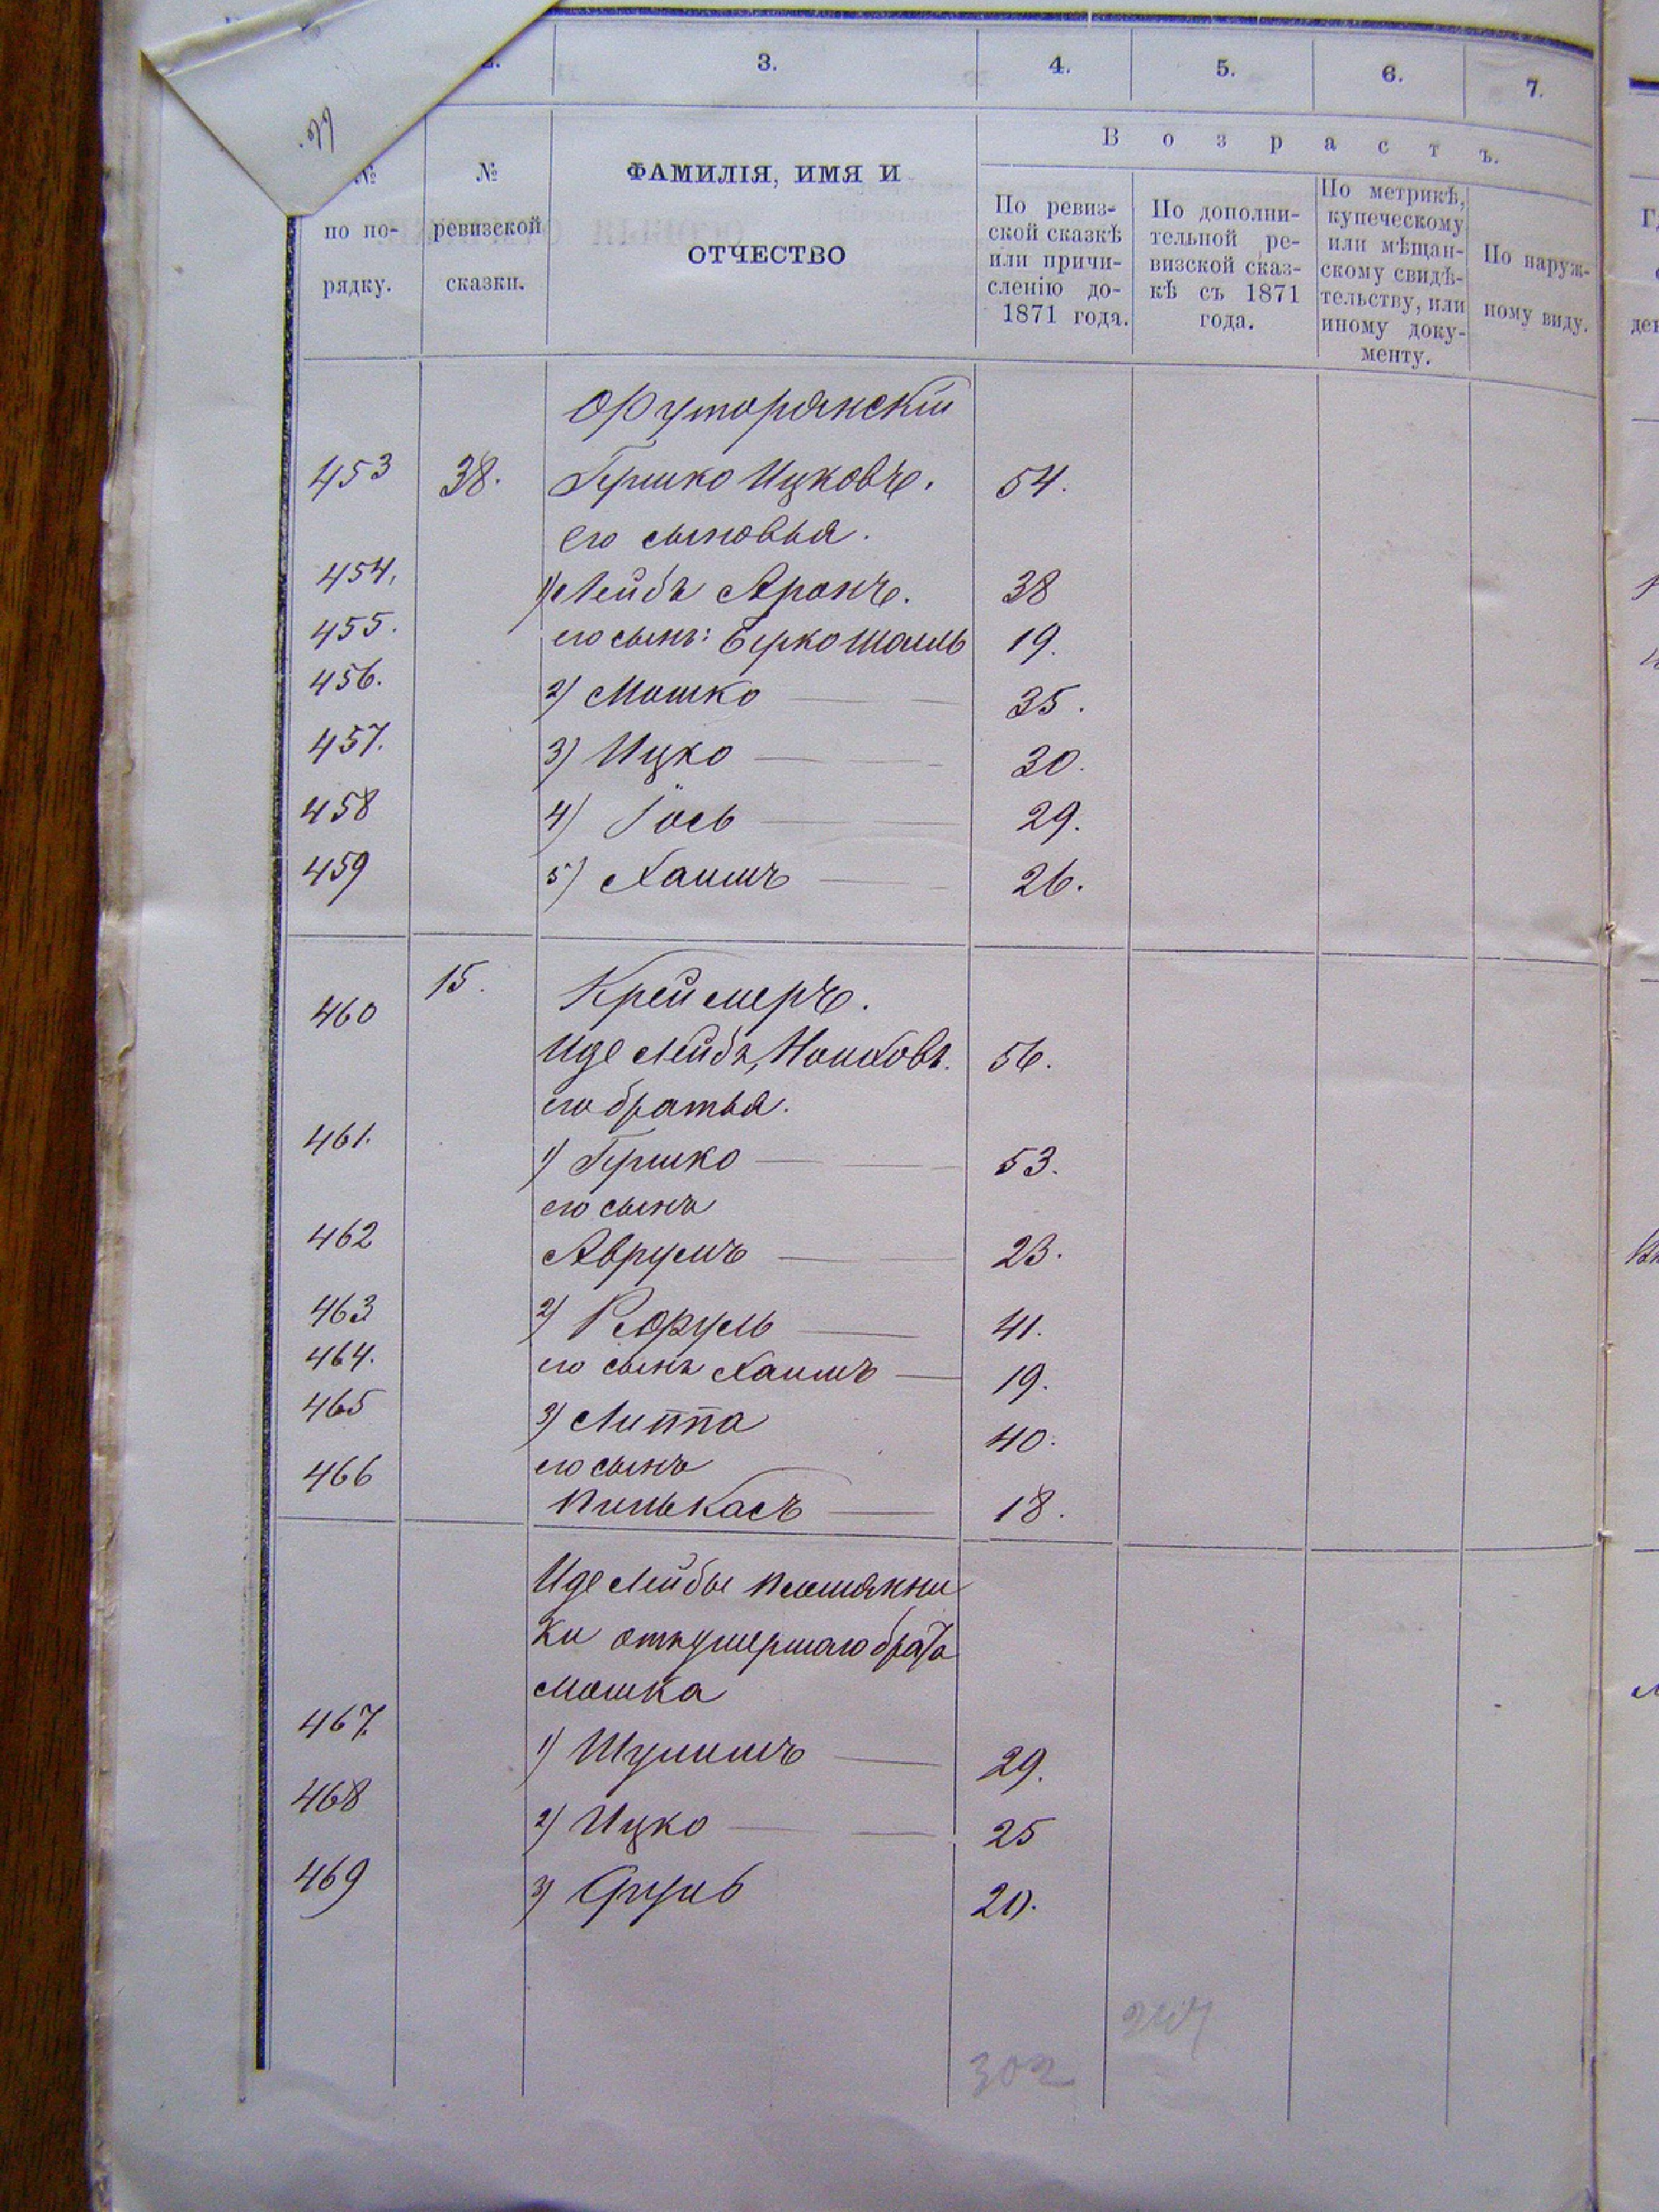 3. 4. 5. 6. 7.
Возрастъ.
№ по порядку.
№ ревизской сказки.
ФАМИЛІЯ, ИМЯ И
ОТЧЕСТВО
По ревиз-
ской сказкѣ
или причи-
сленію до
1871 года.
По дополни-
тельной ре-
визской сказ-
кѣ съ 1871
года.
По метрикѣ,
купеческому
или мѣщан-
скому свидѣ-
тельству, или
иному доку-
менту.
По наруж-
ному виду.
Футорянскій
453 38. Гершко Ицковъ. 54.
Его сыновья.
454. 1) Лейба Аронъ. 38
455. его сынъ: Берко Шмиль 19.
456. 2) Мошко 35.
457. 3) Ицко 30.
458 4) Іось 29.
459 5) Хаимъ 26.
460 15. Креймеръ.
Иде Лейба 56.
его братья.
461. 1) Гершко 53.
его сынъ
462 Аврумъ 23.
463 2) 41.
464. его сынъ Хаимъ 19.
465 3) Липпа 40.
его сынъ
466 Пинькасъ 18.
Иде Лейбы племянни
ки отъ умершаго брата
Мошка
467. 1) Шулимъ 29.
468 2) Ицко 25
469 3) Сруль 20.
302